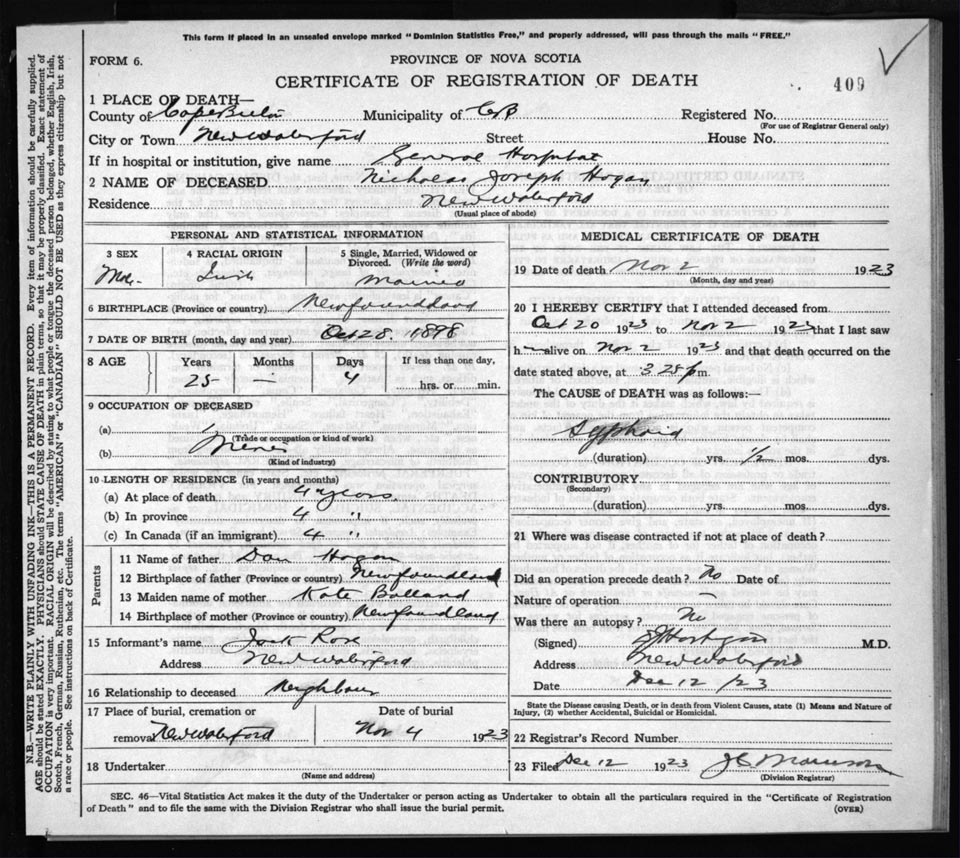 This form if placed in an unsealed envelope marked "Dominion Statistics Free," and properly addressed, will pass through the mails "FREE."
FORM 6.
PROVINCE OF NOVA SCOTIA
CERTIFICATE OF REGISTRATION OF DEATH
409
1 PLACE OF DEATH—
County of Cape Breton Municipality of CB Registered No.
(For use of Registrar General only)
City or Town New Waterford Street House No.
If in hospital or institution, give name General Hospital
2 NAME OF DECEASED Nicholas Joseph Hogan
Residence New Waterford
(Usual place of abode)
PERSONAL AND STATISTICAL INFORMATION
3 SEX 4 RACIAL ORIGIN 5 Single, Married, Widowed or Divorced. (Write the word)
Irish Married
6 BIRTHPLACE (Province or country) Newfoundland
7 DATE OF BIRTH (month, day and year) Oct 28. 1898
8 AGE Years Months Days If less than one day,
25 — 4 hrs. or min.
9 OCCUPATION OF DECEASED
(a)
(Trade or occupation or kind of work)
(b)
(Kind of industry)
10 LENGTH OF RESIDENCE (in years and months)
(a) At place of death 4 years
(b) In province 4 "
(c) In Canada (if an immigrant) 4 "
Parents
11 Name of father Dan Hogan
12 Birthplace of father (Province or country) Newfoundland
13 Maiden name of mother Kate Bolland
14 Birthplace of mother (Province or country) Newfoundland
15 Informant's name Jack Rose
Address New Waterford
16 Relationship to deceased Neighbour
17 Place of burial, cremation or removal New Waterford Date of burial Nov 4 1923
18 Undertaker
(Name and address)
MEDICAL CERTIFICATE OF DEATH
19 Date of death Nov 2 1923
(Month, day and year)
20 I HEREBY CERTIFY that I attended deceased from
Oct 20 1923 to Nov 2 1923 that I last saw
h alive on Nov 2 1923 and that death occurred on the
date stated above, at 3 28 p m.
The CAUSE of DEATH was as follows:—
Typhoid
(duration) yrs. 1/2 mos. dys.
CONTRIBUTORY
(Secondary)
(duration) yrs. mos. dys.
21 Where was disease contracted if not at place of death?
Did an operation precede death? No Date of
Nature of operation
Was there an autopsy? No
(Signed) M.D.
Address New Waterford
Date Dec 12 /23
State the Disease causing Death, or in death from Violent Causes, state (1) Means and Nature of
Injury, (2) whether Accidental, Suicidal or Homicidal.
22 Registrar's Record Number
23 Filed Dec 12 1923 J C Morrison
(Division Registrar)
SEC. 46—Vital Statistics Act makes it the duty of the Undertaker or person acting as Undertaker to obtain all the particulars required in the "Certificate of Registration
of Death" and to file the same with the Division Registrar who shall issue the burial permit.
(OVER)
N.B.—WRITE PLAINLY WITH UNFADING INK—THIS IS A PERMANENT RECORD. Every item of information should be carefully supplied.
AGE should be stated EXACTLY. PHYSICIANS should STATE CAUSE OF DEATH in plain terms, so that it may be properly classified. Exact statement of
OCCUPATION is very important. RACIAL ORIGIN will be described by stating to what people or tongue the deceased person belonged, whether English, Irish,
Scotch, French, German, Russian, Ruthenian, etc. The terms "AMERICAN" or "CANADIAN" SHOULD NOT BE USED as they express citizenship but not
a race or people. See instructions on back of Certificate.